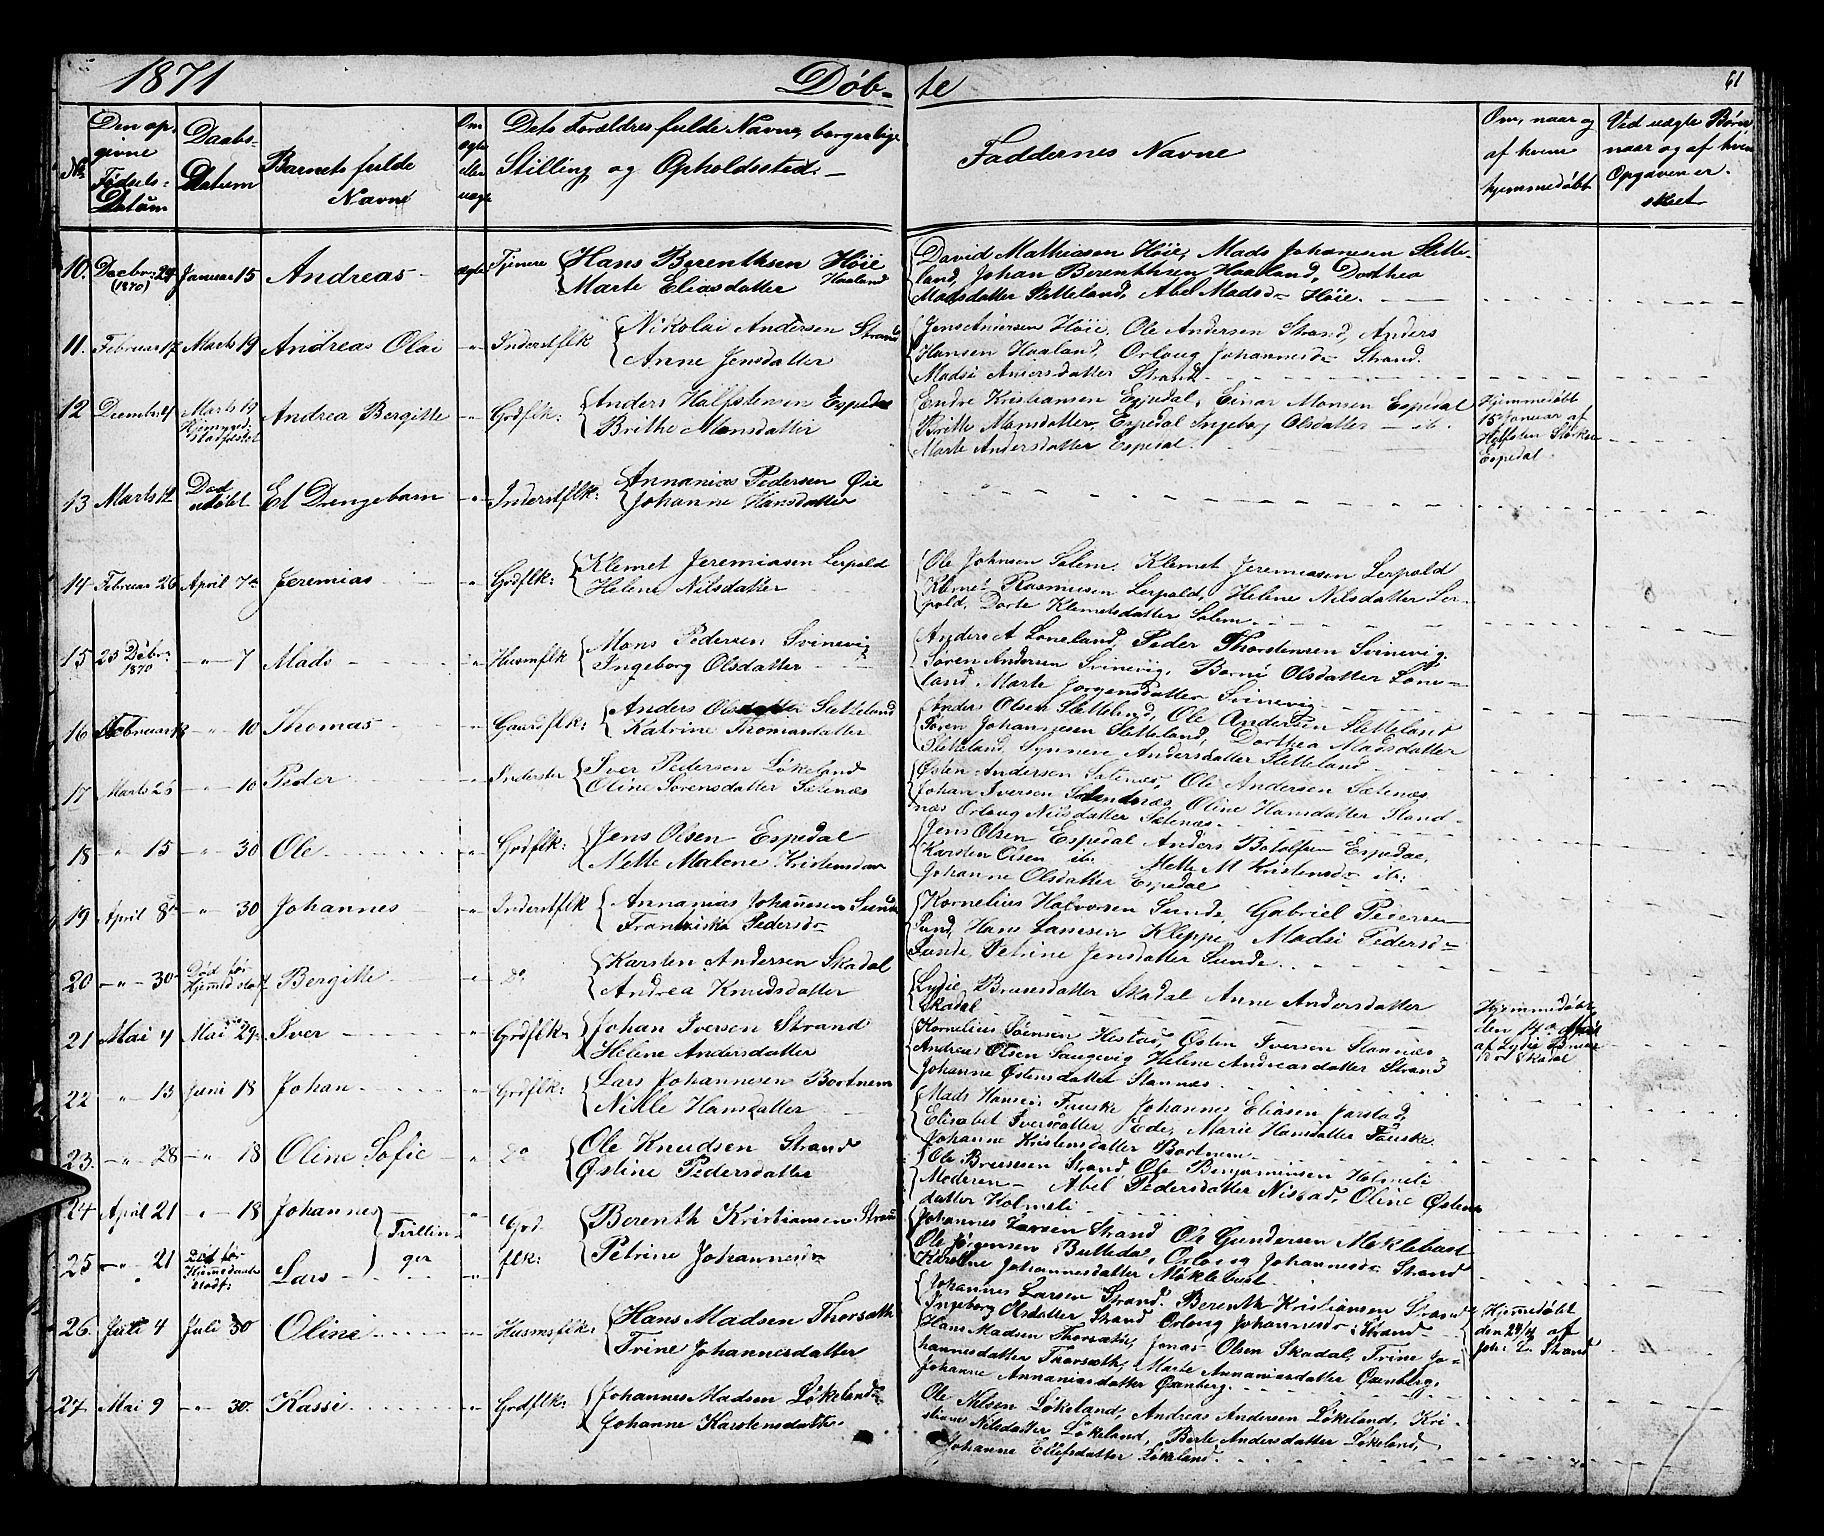 1871 Døb- te 61
No. Den opgivne Fødsels-Datum Daabs-Datum Barnets fulde Navne Om ægte eller uægte Dets Forældres fulde Navne, borgerlige Stilling og Opholdssted.- Faddernes Navne Om, naar og af hvem hjemmedøbt Ved uægte Børn naar og af hvem Opgaven er skeet
10. Decbr: 29 (1870) Januar 15 Andreas ægte Tjenere Hans Berenthsen Höie
Marte Eliasdatter Haaland
David Mathiasen Höie, Mads Johanesen Slette-
land, Johan Berenthsen Haaland, Dorthea
Madsdatter Sletteland, Abel Madsd- Höie.
11. Februar 17 Marts 19 Andreas Olai -"- Inderstflk Nikolai Andersen Strand
Anne Jensdatter
Jens Andersen Höie, Ole Andersen Strand, Anders
Hansen Haaland, Orloug Johannesd- Strand.
Madsi Andersdatter Strand
12 Decembr 4 Marts 19 Hjemmed: stadfestet Andrea Bergitte -"- Grdflk: Anders Halfstensen Espedal
Brithe Monsdatter
Endre Kristiansen Espedal, Einar Monsen Espedal
Britte Monsdatter, Espedal Ingeborg Olsdatter - ib.
Marte Andersdatter Espedal.
Hjemmedöbt
15 Januar af
Halfsten
Espedal
13 Marts 12 Død udöbt Et Drengebarn -"- Inderstflk: Annanias Pedersen Øie
Johanne Hansdatter
14 Februar 26 April 7de Jeremias -"- Grdflk: Klemet Jeremiasen Lerpold
Helene Nilsdatter
Ole Johnsen Salem. Klemet Jeremiasen Lerpold
Rasmusen Lerpold, Helene Nilsdatter Ler-
pold, Dorte Klemetsdatter Salem
15 25 Decbr: 1870 -"- 7 Mads -"- Husmflk Mons Pedersen Svinevig
Ingeborg Olsdatter
Anders A Loneland, Peder Thorstensen Svinevig.
Sören Andersen Svinevig, Olsdatter Lone-
land, Marte Jorgensdatter Svinevig
16 Februar 13 -"- 10 Thomas -"- Gaardflk: Anders Sletteland
Katrine Thomasdatter
Anders Olsen Sletteland, Ole Andersen Sletteland
Sören Johannesen Sletteland, Dorthea Madsdatter
Sletteland, Synneve Andersdatter Sletteland
17 Marts 25 -"- 10 Peder -"- Inderster Iver Pedersen Lökeland
Oline Sörensdatter Sætenæs
Østen Andersen Sætenæs, Ole Andersen Sætenæs
Johan Iversen Standnæs, Oline Hansdatter Stand-
næs Orloug Nilsdatter Sætenæs
18 " 15 -"- 30 Ole -"- Grdflk: Jens Olsen Espedal
Mette Malene Kristensdatter
Jens Olsen Espedal Anders Botolfsen Espedal,
Karsten Olsen ib. Mette M Kristensd- ib:
Johanne Olsdatter Espedal
19 April 8de -"- 30 Johannes -"- Inderstflk Annanias Johannesen Sunde
Frantziska Pedersd-
Kornelius Halvorsen Sunde, Gabriel Pedersen
Sund, Hans Larsen Kleppe, Madsi Pedersd-
Sunde, Petrine Jensdatter Sunde.
20 -"- 30 Död för Hjemmed. stadf Bergitte -"- Do Karsten Andersen Skadal
Andrea Knudsdatter
Lydie Brunsdatter Skadal Anne Andersdatter
Skadal
Hjemmedöbt
den 14de April
af Lydie
Skadal
21 Mai 4 Mai 29 Iver -"- Grdflk: Johan Iversen Strand
Helene Andersdatter
Kornelius Hestad, Østen Iversen Stannæs
Andreas Olsen Saugevig Helene Andreasdatter Strand
Johanne Østensdatter Stannæs
22 " 13 Juni 18 Johan -"- Grdflk: Lars Johannesen Bortnem
Nille Hansdatter
Mads Hansen Fauske Johannes Eliasen Jarstad,
Elisabet Iversdatter Ede, Marie Hansdatter Fauske.
Johanne Kristensdatter Bortnem
23. -"- 28 -"- 18 Oline Sofie -"- Do Ole Knudsen Strand
Östine Pedersdatter
Ole Strand Ole Benjaminsen Holmeli
Moderen - Abel Pedersdatter Nistad, Oline Østens-
datter Holmeli
24 April 21 -"- 18 Johannes Tvillinger -"- Grdflk: Berenth Kristiansen Strand
Petrine Johannesd-
Johannes Larsen Strand Ole Gundersen Möklebust
Ole Jörgensen Orloug Johannesd- Strand
Johannesdatter Möklebust
25 -"- 21 Död för Hjemmedaabs Stadf: Lars -"-
Johannes Larsen Strand. Berenth Kristiansen Strand
Ingeborg Olsdatter Strand Orloug Johannesd- Strand
Hjemmedöbt
den 24/4 af
Joh: L. Strand
26. Juli 4 Juli 30 Oline -"- Husmsflk: Hans Madsen Thorsæth
Trine Johannesdatter
Hans Madsen Thorsæth, Jonas Olsen Skadal, Trine Jo-
hannesdatter Thorsæth, Marte Annaniasdatter Öxenberg,
Johanne Annaniasdatter Öxenberg.
27. Mai 9 -"- 30 Kassi -"- Grdflk: Johannes Madsen Lökeland
Johanne Karstensdatter
Ole Nilsen Lökeland, Andreas Andersen Lökeland, Kri-
stiane Nilsdatter Lökeland, Berte Andersdatter Lökeland,
Johanne Ellefsdatter Lökeland.